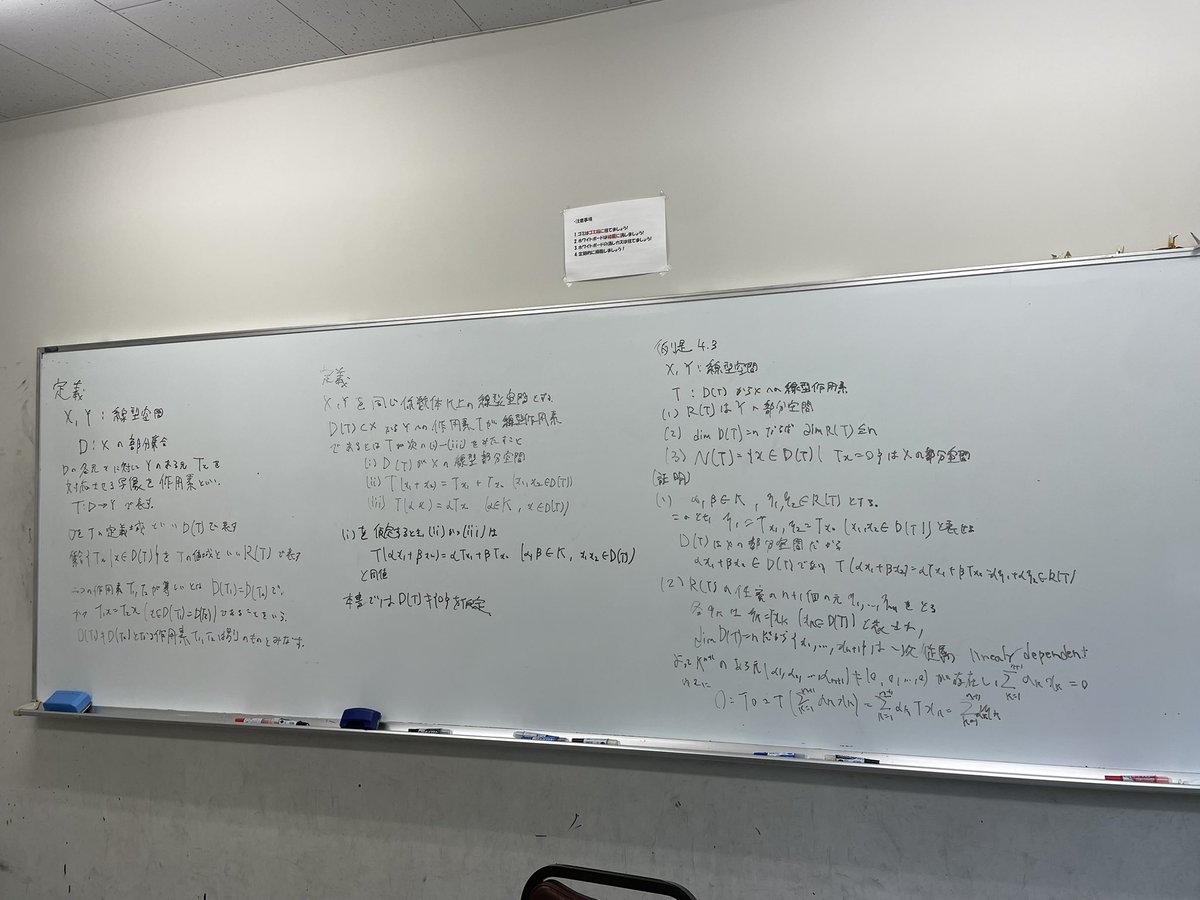 ・注意事項
1.ゴミはゴミ箱に捨てましょう!
2.ホワイトボードは綺麗に消しましょう!
3.ホワイトボードの消しカスは捨てましょう!
4.定期的に掃除しましょう!
定義
X, Y : 線型空間
D : Xの部分集合
Dの各元xに対しYのある元Txを
対応させる写像を作用素という。
T: D→Y で表す.
DをTの定義域といいD(T)で表す
集合{Tx | x∈D(T)}をTの値域といいR(T)で表す
二つの作用素T₁,T₂が等しいとは D(T₁)=D(T₂)で,
かつ T₁x=T₂x (x∈D(T₁)=D(T₂))であることをいう.
D(T₁)≠D(T₂)となる作用素T₁,T₂は別のものとみなす.
定義
X, Yを同じ係数体K上の線型空間とする.
D(T)⊂XからYへの作用素Tが線型作用素
であるとはTが次の(i)~(iii)をみたすこと
(i) D(T)がXの線型部分空間
(ii) T(x₁+x₂)=Tx₁+Tx₂ (x₁,x₂∈D(T))
(iii) T(αx)=αTx (α∈K, x∈D(T))
(i)を仮定するとき(ii)かつ(iii)は
T(αx₁+βx₂)=αTx₁+βTx₂ (α,β∈K, x₁,x₂∈D(T))
と同値
本書ではD(T)≠{0}を仮定.
例題 4.3
X, Y : 線型空間
T : D(T)からXへの線型作用素
(1) R(T)はYの部分空間
(2) dim D(T)=nならば dim R(T)≤n
(3) N(T)={x∈D(T) | Tx=0}はXの部分空間
(証明)
(1) α,β∈K, y₁,y₂∈R(T)とする.
このとき, y₁=Tx₁, y₂=Tx₂ (x₁,x₂∈D(T))と表せる
D(T)はXの部分空間だから
αx₁+βx₂∈D(T)であり T(αx₁+βx₂)=αTx₁+βTx₂=αy₁+αy₂∈R(T)
(2) R(T)の任意のn+1個の元y₁,…,yₙ₊₁をとる
各yₖはyₖ=Txₖ (xₖ∈D(T))と表せ,
dim D(T)=nだから{x₁,…,xₙ₊₁}は一次従属 linearly dependent
よってKⁿ⁺¹のある元(α₁,α₂,…,αₙ₊₁)≠(0,0,…,0)が存在し, Σₖ₌₁ⁿ⁺¹ αₖxₖ=0
ゆえに
0=T0=T(Σₖ₌₁ⁿ⁺¹ αₖxₖ)=Σₖ₌₁ⁿ⁺¹ αₖTxₖ=Σₖ₌₁ⁿ⁺¹